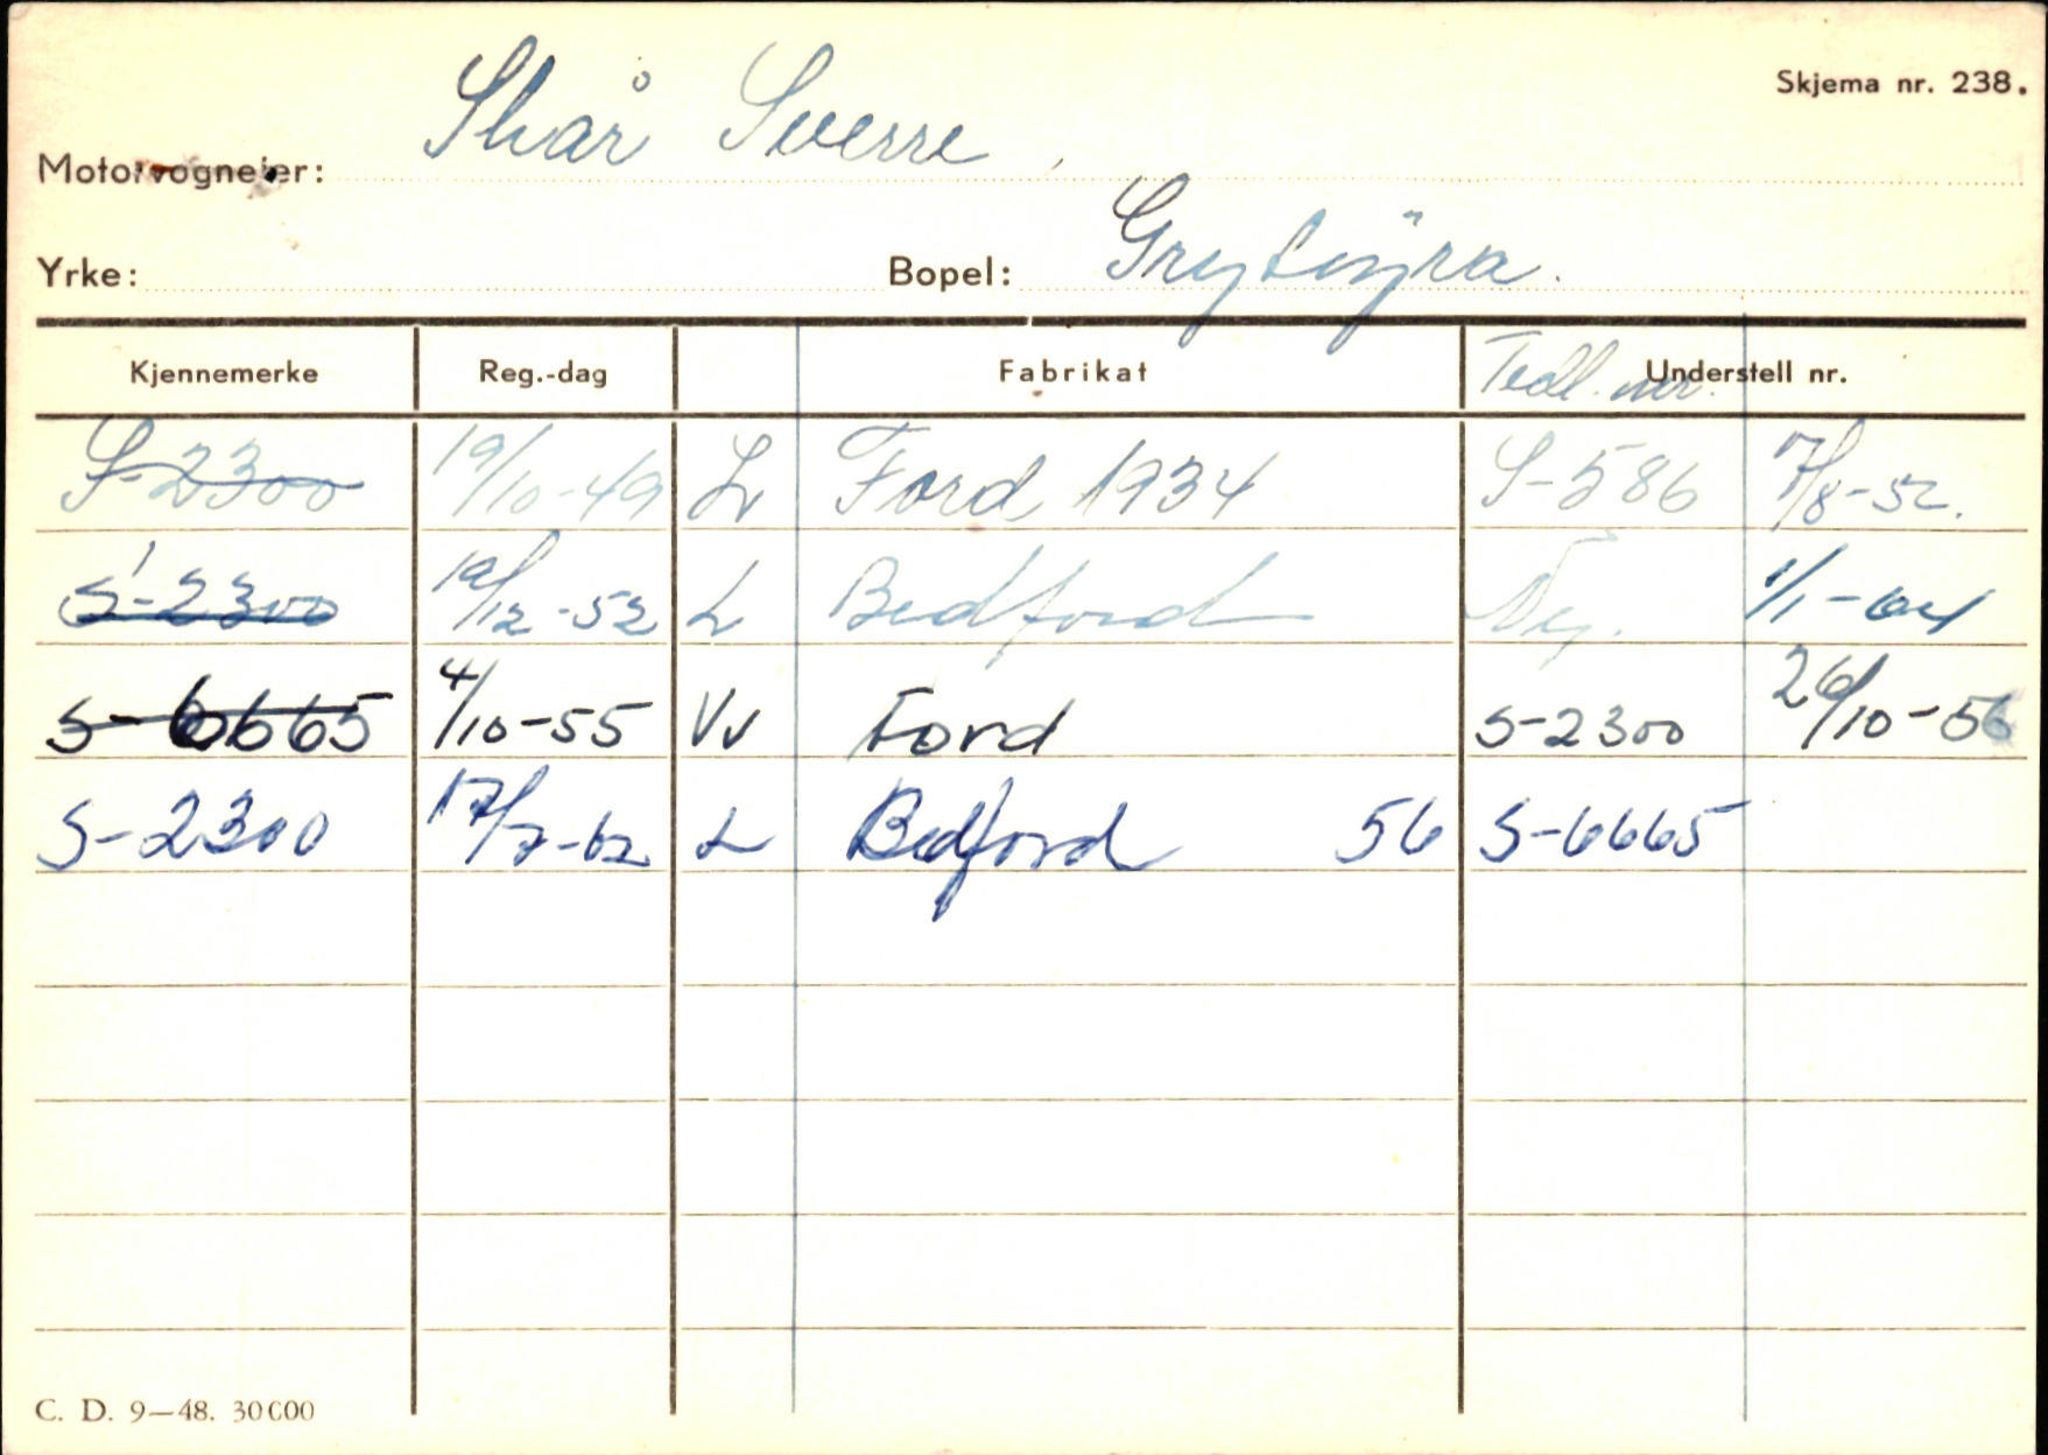 Skjema nr. 238.
Motorvogneier: Skår Sverre
Yrke: Bopel: Grytöyra.
Kjennemerke Reg.-dag Fabrikat Tidl. nr. Understell nr.
S-2300 19/10-49 Lv Ford 1934 S-586 7/8-52.
S-2300 19/12-52 L Bedford Ny. 1/1-64
S-6665 4/10-55 Vv Ford S-2300 26/10-56
S-2300 17/7-62 L Bedford 56 S-6665
C. D. 9—48. 30000